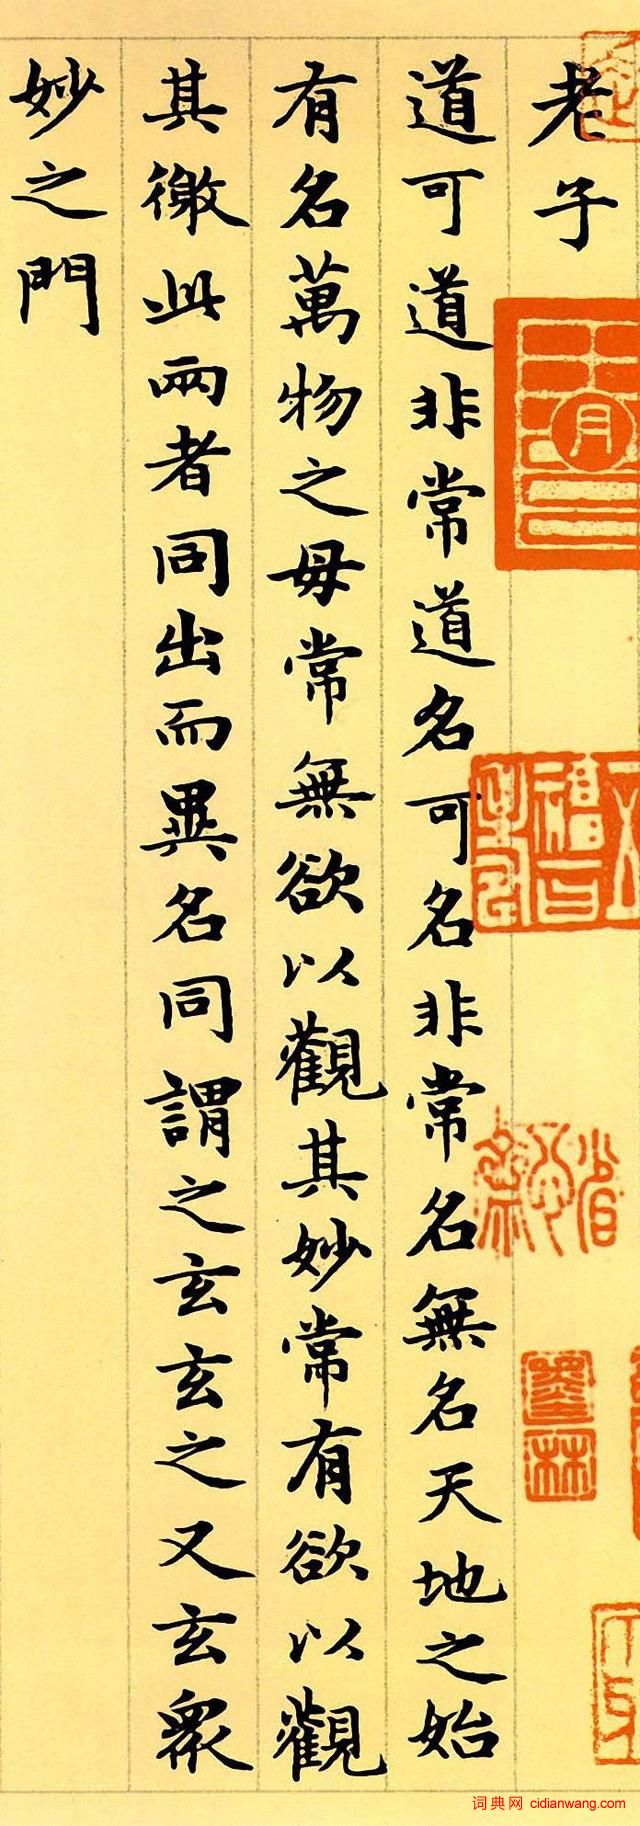 老子
道可道非常道名可名非常名無名天地之始
有名萬物之母常無欲以觀其妙常有欲以觀
其徼此兩者同出而異名同謂之玄玄之又玄衆
妙之門
词典网 cidianwang.com